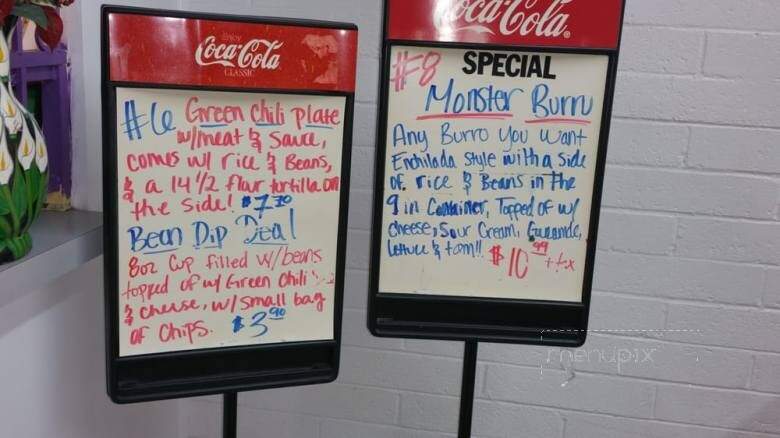 Enjoy
Coca-Cola
CLASSIC
#6 Green Chili Plate
w/meat & Sauce,
comes w/ rice & Beans,
& a 14 1/2 flour tortilla on
the side! $7.70
Bean Dip Deal
8oz Cup filled w/beans
topped of w/ Green Chili
& cheese, w/ small bag
of Chips. $3.90
Coca-Cola
#8 SPECIAL
Monster Burro
Any Burro you want
Enchilada style with a side
of rice & Beans in the
9 in Container, Topped of w/
cheese, Sour Cream,
lettuce & tom!! $10.99 + tx
menupix